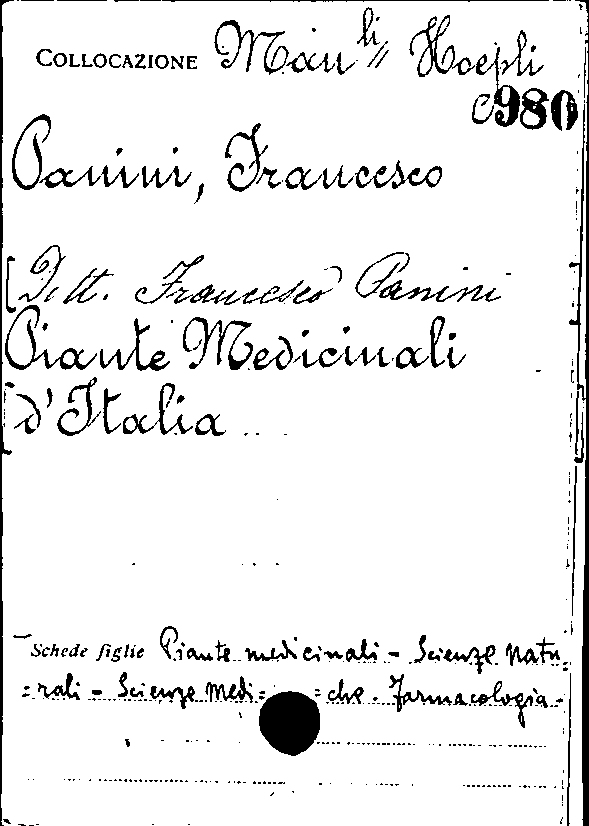 COLLOCAZIONE Man li // Hoepli
C 980
Panini, Francesco
[Dott. Francesco Panini]
Piante Medicinali
d'Italia
Schede figlie Piante medicinali - Scienze natu=
=rali - Scienze Medi= =che. Farmacologia -